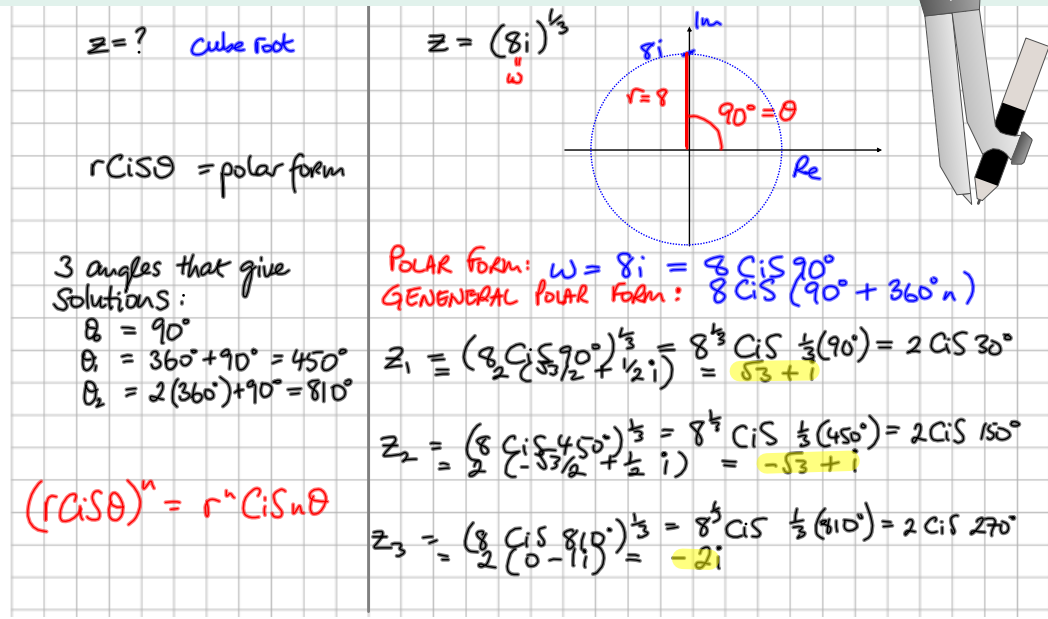 z = ? cube root
rCisθ = polar form
3 angles that give
solutions:
θ₀ = 90°
θ₁ = 360° + 90° = 450°
θ₂ = 2(360°) + 90° = 810°
(rCisθ)ⁿ = rⁿ Cis nθ
z = (8i)^⅓
"
ω
Im
8i
r = 8
90° = θ
Re
POLAR FORM: ω = 8i = 8 Cis 90°
GENENERAL POLAR FORM: 8 Cis (90° + 360°n)
Z₁ = (8 Cis 90°)^⅓ = 8^⅓ Cis ⅓(90°) = 2 Cis 30°
= 2 (√3/2 + 1/2 i) = √3 + i
Z₂ = (8 Cis 450°)^⅓ = 8^⅓ Cis ⅓(450°) = 2 Cis 150°
= 2 (-√3/2 + ½ i) = -√3 + i
Z₃ = (8 Cis 810°)^⅓ = 8^⅓ Cis ⅓(810°) = 2 Cis 270°
= 2 (0 - 1i) = - 2i